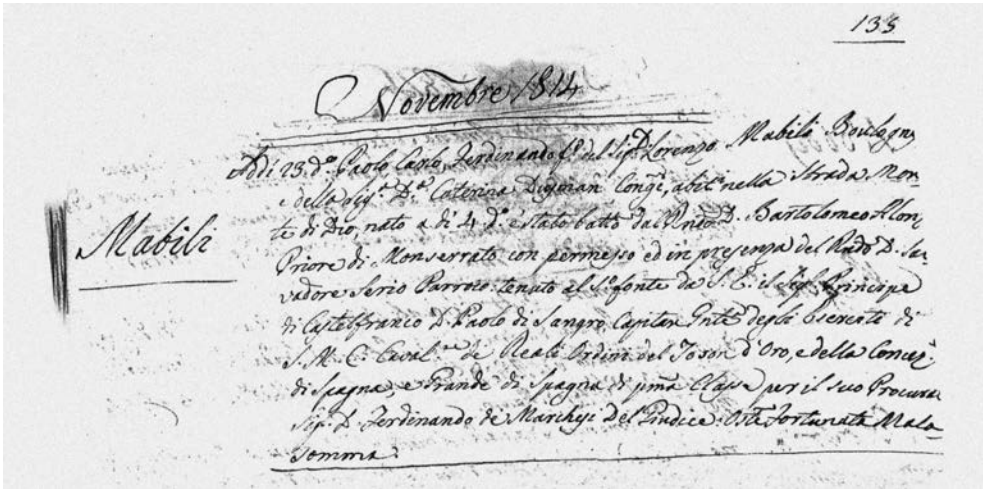 135
Novembre 1814
Mabili
Addi 23 d.º Paolo Carlo, Ferdinando f.º del Sig.r D. Lorenzo Mabili Boulogny
e della Sig.ª D.ª Caterina Cong.i, abit.i nella Strada Mon-
te di Dio, nato a di 4 d.º è stato batt.º dal D. Bartolomeo
Priore di Monserrato con permesso ed in presenza del Rndo D. Sal-
vadore Serio Parroco: tenuto al S. fonte da S. E. il Sig. Principe
di Castelfranco D. Paolo di Sangro Capitan degli Eserciti di
S. M. C. Caval.re de Reali Ordini del Toson d'Oro, e della Concez.
di Spagna, e Grande di Spagna di pma Classe per il suo Procura
Sig. D. Ferdinando de Marchesi Del Giudice: Oste Fortunata Mala-
somma